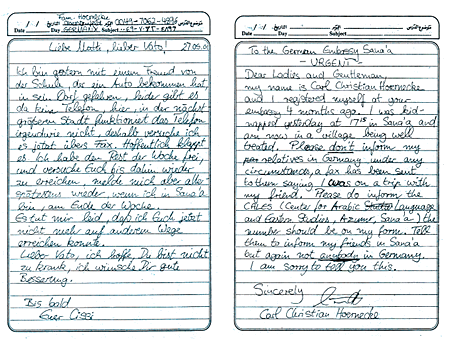 Fam. Hoernecke
Date / / Day GERMANY Subject
Liebe Mutti, lieber Vato! 27.05.01
Ich bin gestern mit einem Freund von
der Schule, die ein Auto bekommen hat,
in sein Dorf gefahren, leider gibt es
da kein Telefon, hier in der nächst
größeren Stadt funktioniert das Telefon
irgendwie nicht, deshalb versuche ich
es jetzt übers Fax. Hoffentlich klappt
es. Ich habe den Rest der Woche frei,
und versuche Euch bis dahin wieder
zu erreichen, melde mich aber aller-
spätestens wieder wenn ich in Sana'a
bin, am Ende der Woche.
Es tut mir leid, daß ich Euch jetzt
nicht mehr auf anderem Wege
erreichen konnte.
Lieber Vato, ich hoffe, Du bist nicht
zu krank, ich wünsche Dir gute
Besserung.
Bis bald
Euer Cissi
Date / / Day Subject
To the German Embassy Sana'a
- URGENT -
Dear Ladies and Gentleman,
my name is Carl Christian Hoernecke
and I registered myself at your
embassy 4 months ago. I was kid-
napped yesterday 17 15 in Sana'a and
am now in a village being well
treated. Please don't inform my
relatives in Germany under any
circumstances, a fax has been sent
to them saying I was on a trip with
my friend. Please do inform the
CALES (Center for Arabic Language
and Eastern Studies, Azumur, Sana'a) the
number should be on my form. Tell
them to inform my friends in Sana'a
but again not anybody in Germany.
I am sorry to tell you this.
Sincerely
Carl Christian Hoernecke